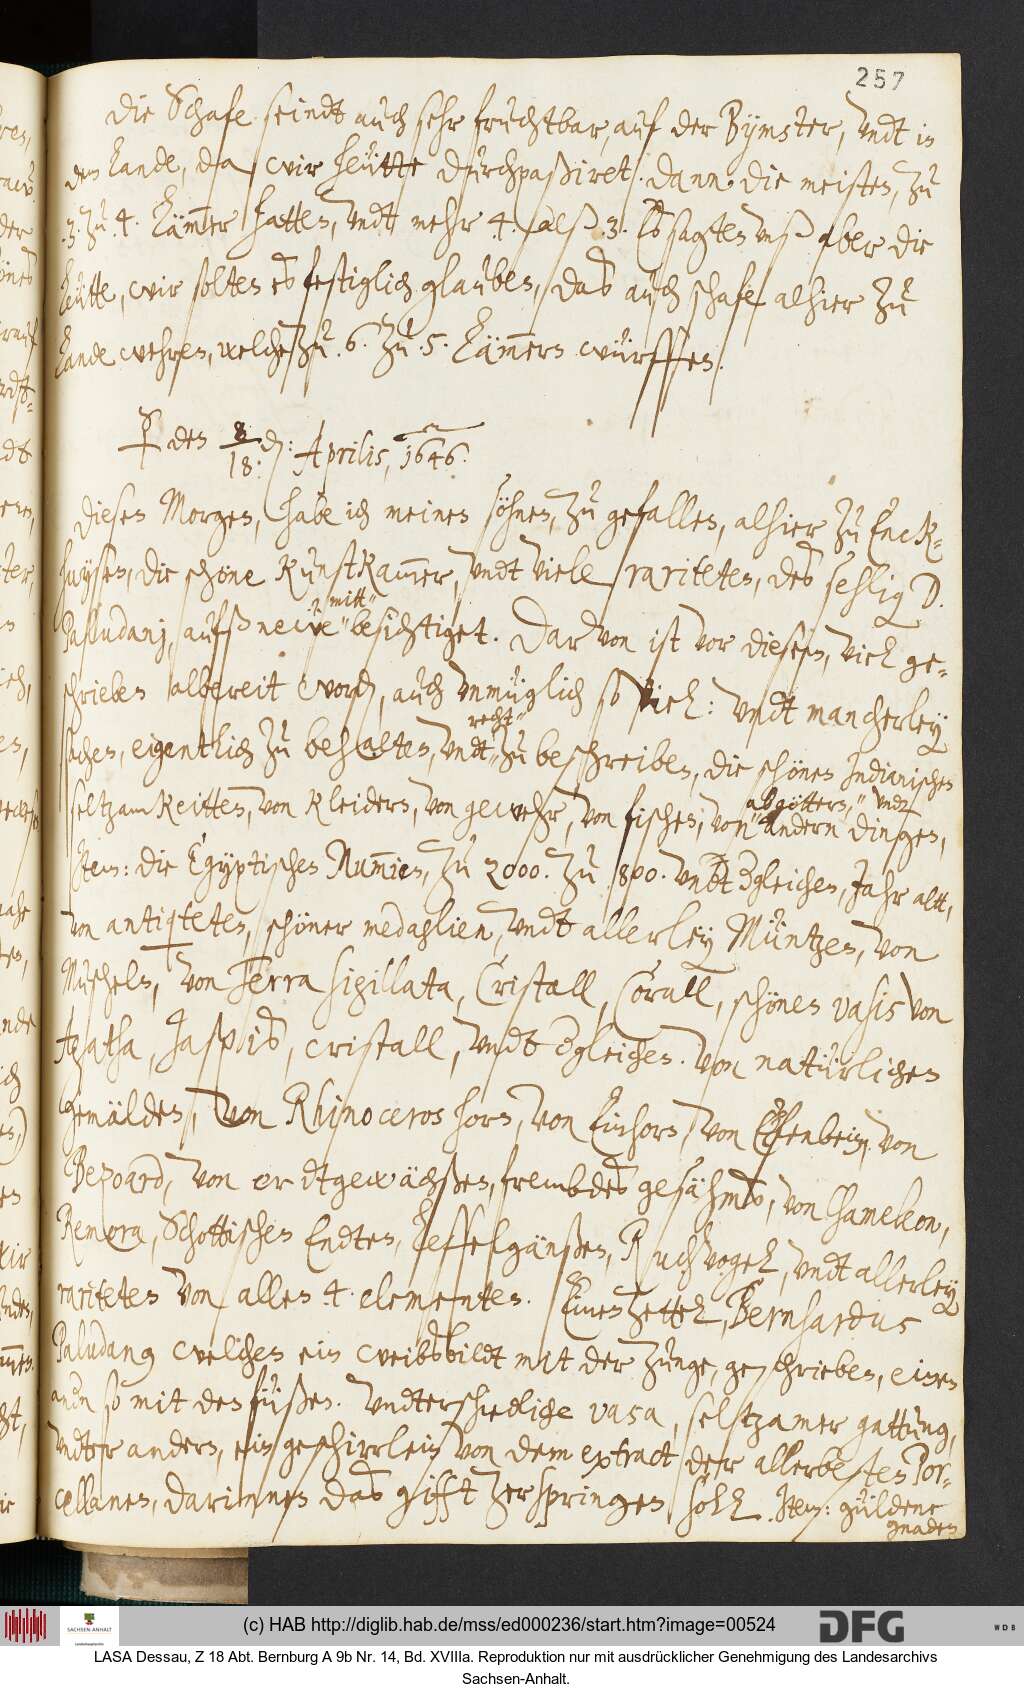 257
Die Schafe seindt auch sehr fruchtbar, auf der Bymster, undt in
dem Lande, da wir heütte durchpaßiret. dann die meisten, zu
.3. zu .4. Lämmer hatten, undt mehr 4. alß .3. Es sagten unß aber die
Leütte, wir solten es festiglich glauben, das auch schafe alhier zu
Lande wehren, welche zu .6. zu .5. Lämmern würffen.
den 8/18: d: Aprilis, 1646.
Diesen Morgen, habe ich meinen söhnen, zu gefallen, alhier zu Enck-
huysen, die schöne KunstKammer, undt viele rariteten, des sehlig D.
mitt
Palludanj, aufß neẅe besichtiget. Darvon ist vor diesem, viel ge-
schrieben albereit word, auch unmüglich so viel: undt mancherley
recht
sachen, eigentlich zu behalten, undt zu beschreiben, die schönen Indianischen
seltzamkeitten, von kleidern, von gewehr, von fischen, von
abgöttern, undt
andern dingen,
Item: die Egyptischen Mumien, zu 2000. zu 1800. undt dgleichen, Jahr altt,
von antiqteten, schöner medaglien, undt allerley Müntzen, von
Muscheln, von Terra Sigillata, Cristall, Corall, schönen vasis von
Agatha, Jaspis, cristall, undt dgleichen. von natürlichen
gemälden, von Rhinoceros horn, von Einhorn, von Elfenbein, von
Bezoard, von erdtgewächßen, frembdes gesähms, von Chameleon,
Remora, Schottischen Endten, Leffelgänßen, Ruchvogel, undt allerley
rariteten von allen .4. elementen. Einen Zettel, Bernhardus
Paludang welchen ein weibsbildt mit der zunge, geschrieben, einen
andn so mit den füßen. Undterschiedliche vasa, seltzamer gattung,
undter andern, ein geschirrlein von dem extract der allerbesten Por-
cellanen, darinnen das gifft zerspringen soll. Item: güldene
gnaden
(c) HAB http://diglib.hab.de/mss/ed000236/start.htm?image=00524
SACHSEN-ANHALT
Landeshauptarchiv
DFG
WDB
LASA Dessau, Z 18 Abt. Bernburg A 9b Nr. 14, Bd. XVIIIa. Reproduktion nur mit ausdrücklicher Genehmigung des Landesarchivs
Sachsen-Anhalt.